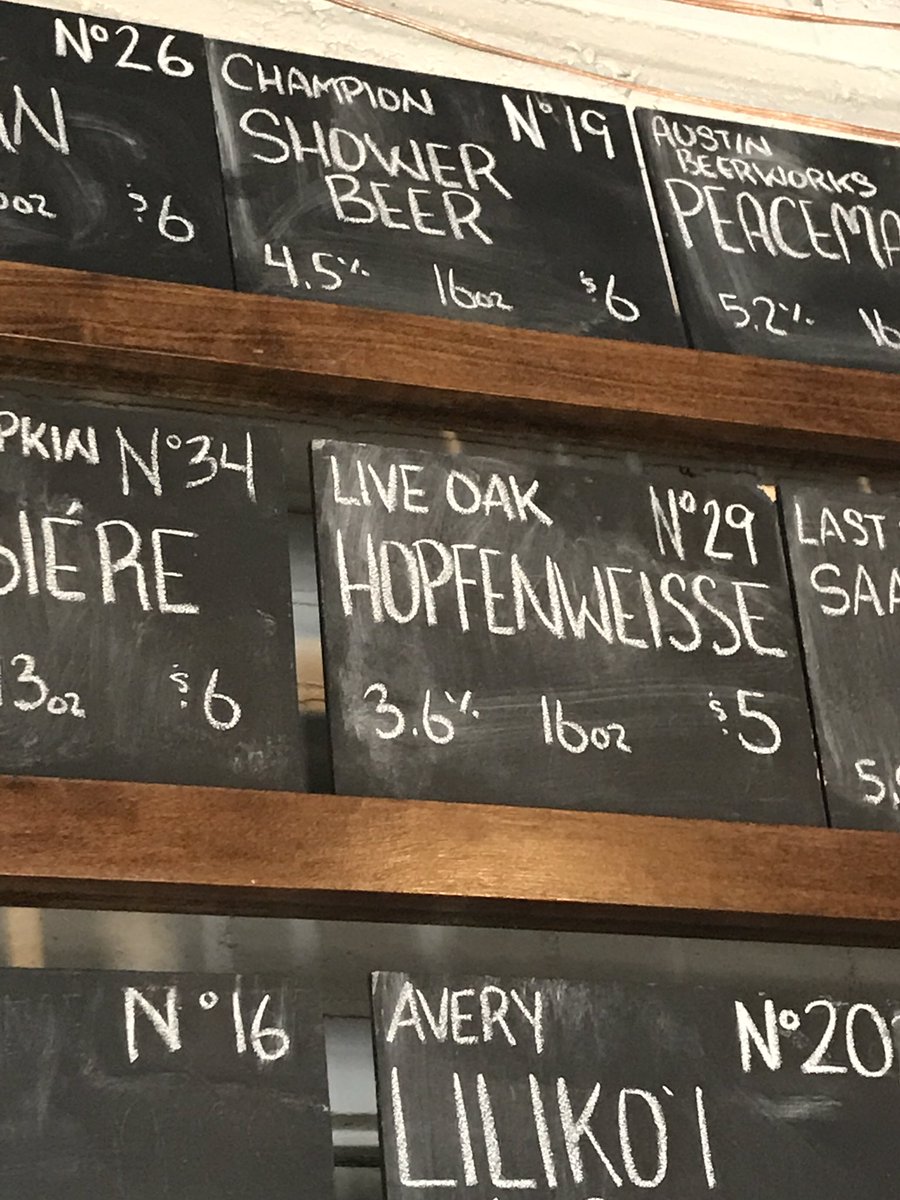 Nº26
$6
CHAMPION Nº19
SHOWER
BEER
4.5% 16oz $6
AUSTIN
BEERWORKS
PEACEMA
5.2% 16
PKIN Nº34
IÉRE
13oz $6
LIVE OAK Nº29
HOPFENWEISSE
3.6% 16oz $5
LAST
SAA
5.
Nº16
AVERY Nº20
LILIKO'I